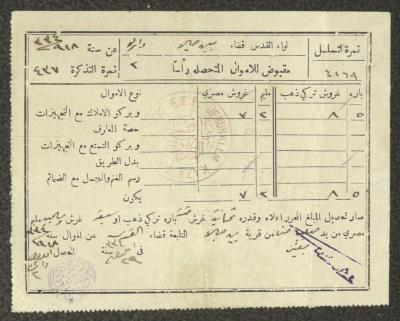 نمرة التسلسل
٤١٦٩
لواء القدس قضاء بيت جالا
مقبوض للاموال المتحصله رأساً
دائره
٢
عن سنة ٣٣٤ ٩١٨
نمرة التذكرة ٤٣٧
باره غروش تركي ذهب مليم غروش مصري نوع الاموال
٥ ٨ ٢ ٧ ويركو الاملاك مع التجهيزات
حصة المعارف
ويركو التمتع مع التجهيزات
بدل الطريق
رسم الغنم والجمل مع الضمائم
٥ ٨ ٢ ٧ يكون
E.E.F. JERUSALEM
صار تحصيل المبلغ المحرر اعلاه وقدره ثمانية غرش خمسة باره تركي ذهب او سبعة غرش مليم
مصري من يد حنا من قرية بيت جالا التابعة قضاء القدس عن اموال سنة ٣٣٤ ٩١٨
في سنة